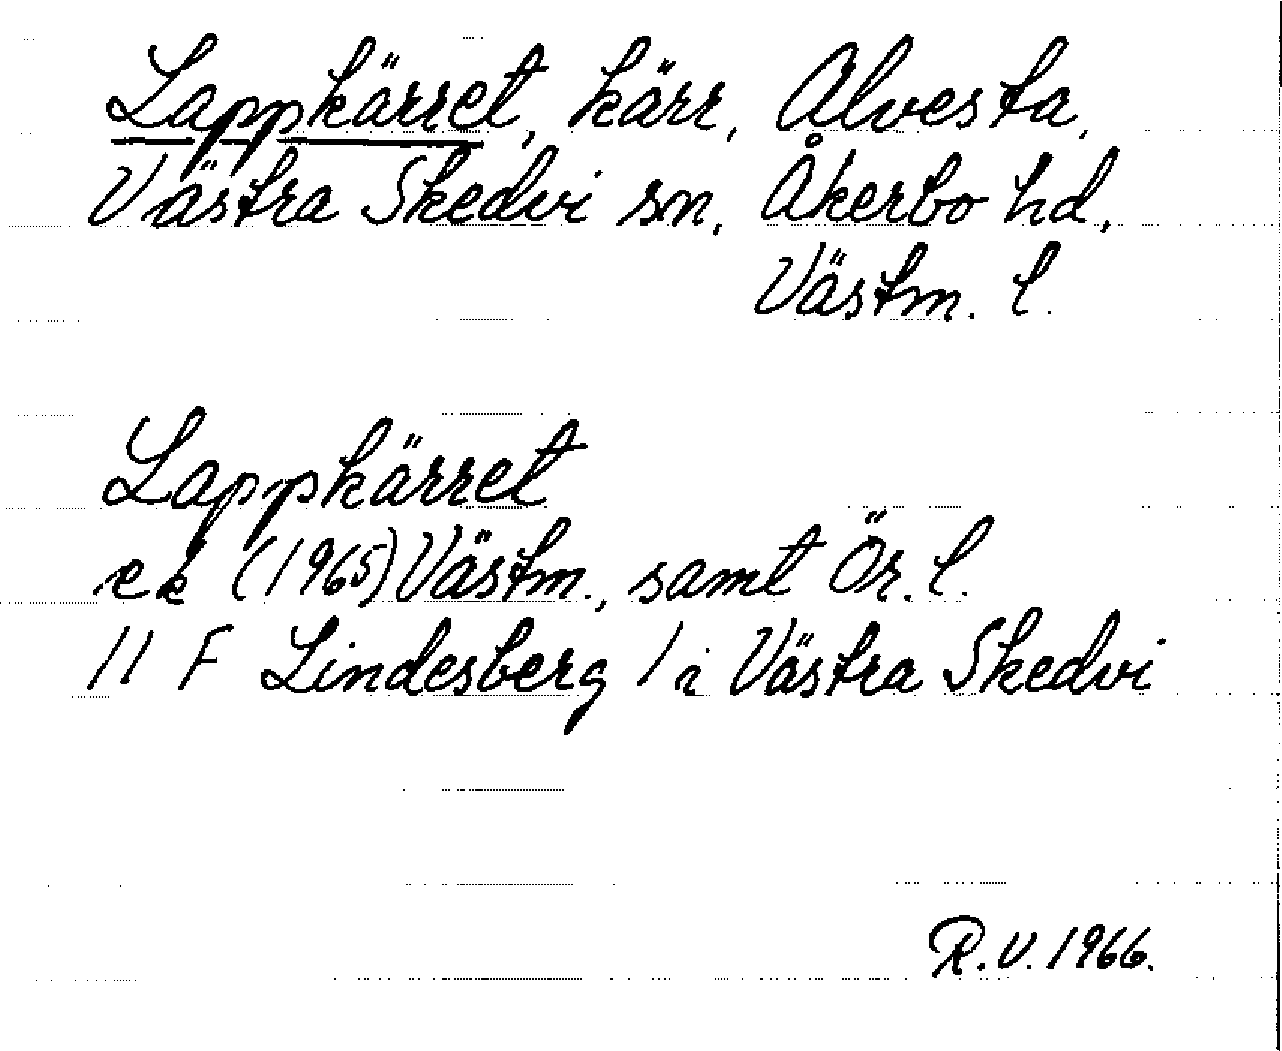 Lappkärret, kärr, Alvesta,
Västra Skedvi sn, Åkerbo hd,
Västm. l.
Lappkärret
ek (1965) Västm., samt Ör. l.
11 F Lindesberg 1 i Västra Skedvi
R.V. 1966.